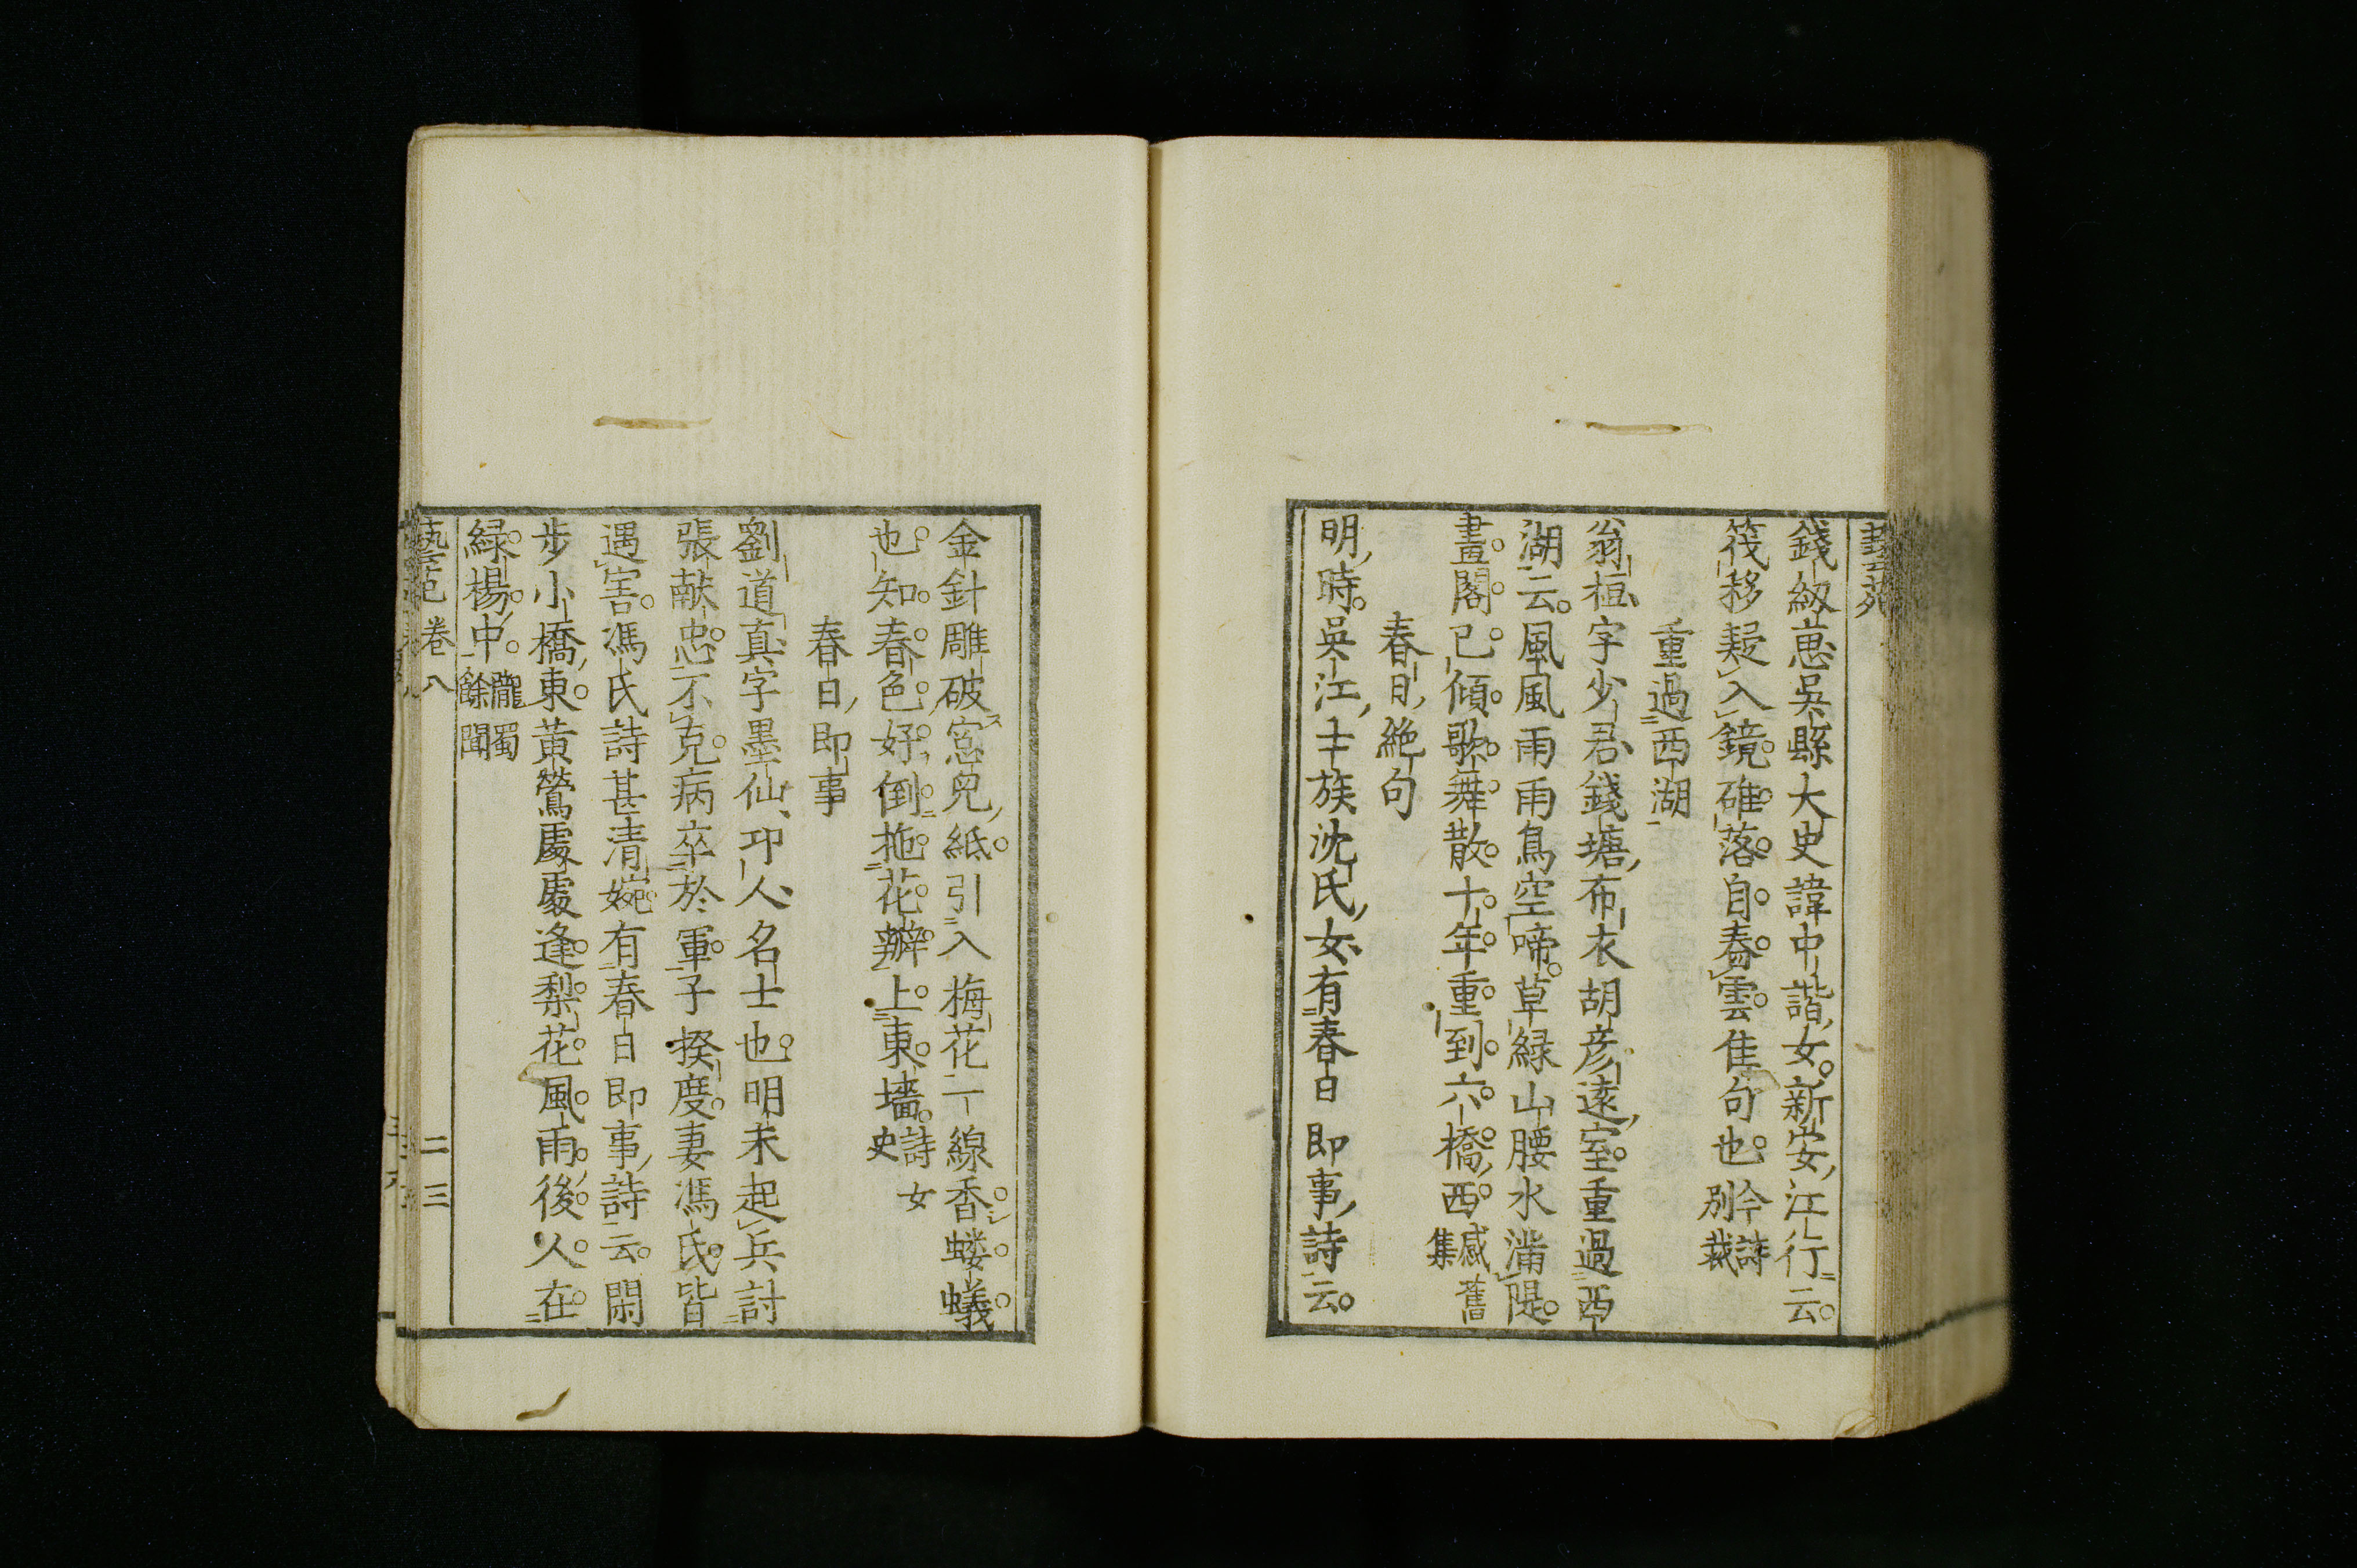 藝苑
錢紉蕙吳縣大史諱中諧女新安江行云
筏移疑入鏡碓落自舂雲佳句也今詩別裁
重過西湖
翁桓字少君錢塘布衣胡彦遠室重過西
湖云風風雨雨鳥空啼草緑山腰水滿隄
畫閣已傾歌舞散十年重到六橋西感舊集
春日絶句
明時吳江士族沈氏女有春日即事詩云
金針雕破窓兒紙引入梅花一線香螻蟻
也知春色好倒拖花瓣上東墻詩女史
春日即事
劉道真字墨仙邛人名士也明末起兵討
張献忠不克病卒於軍子揆度妻馮氏皆
遇害馮氏詩甚清婉有春日即事詩云閑
步小橋東黄鶯處處逢梨花風雨後人在
緑楊中隴蜀餘聞
藝苑 卷八 二三